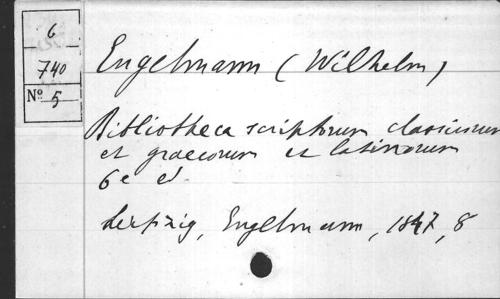 6
740
Nº 5
Engelmann (Wilhelm)
Bibliotheca scriptorum classicorum
et graecorum et latinorum
6e ed
Leipzig, Engelmann, 1847, 8